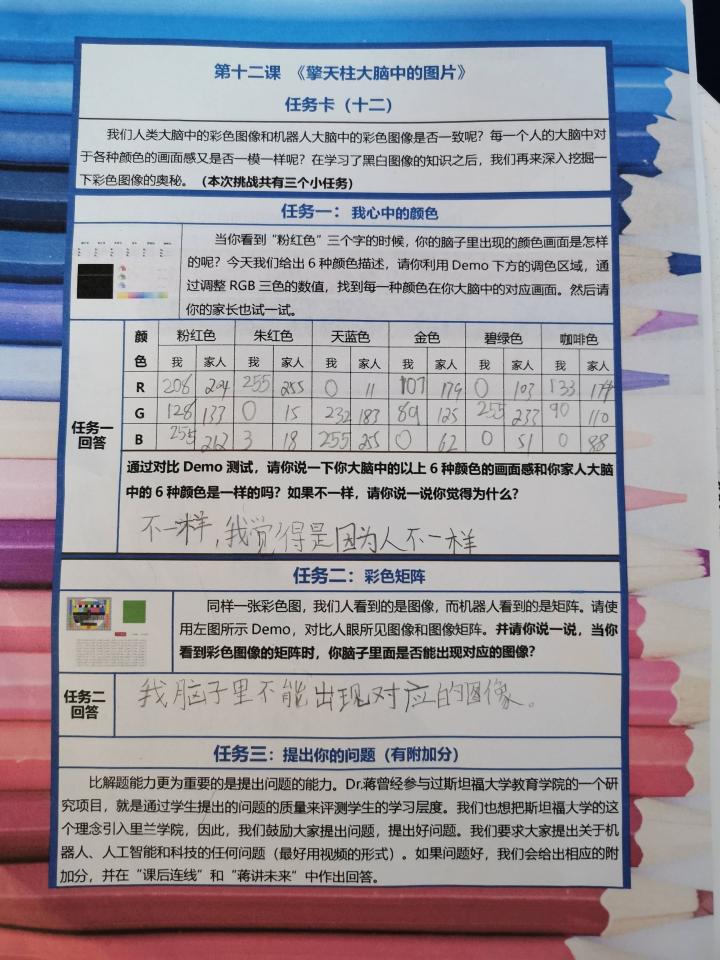 第十二课 《擎天柱大脑中的图片》
任务卡（十二）
我们人类大脑中的彩色图像和机器人大脑中的彩色图像是否一致呢？每一个人的大脑中对
于各种颜色的画面感又是否一模一样呢？在学习了黑白图像的知识之后，我们再来深入挖掘一
下彩色图像的奥秘。（本次挑战共有三个小任务）
任务一：我心中的颜色
当你看到“粉红色”三个字的时候，你的脑子里出现的颜色画面是怎样
的呢？今天我们给出6种颜色描述，请你利用Demo下方的调色区域，通
过调整RGB三色的数值，找到每一种颜色在你大脑中的对应画面。然后请
你的家长也试一试。
任务一
回答
颜色 粉红色 朱红色 天蓝色 金色 碧绿色 咖啡色
我 家人 我 家人 我 家人 我 家人 我 家人 我 家人
R 208 204 255 255 0 11 107 179 0 103 133
G 128 133 0 15 232 183 125 255 233 90 110
B 255 212 3 18 255 255 0 62 0 51 0 88
通过对比Demo测试，请你说一下你大脑中的以上6种颜色的画面感和你家人大脑
中的6种颜色是一样的吗？如果不一样，请你说一说你觉得为什么？
不一样，我觉得是因为人不一样
任务二：彩色矩阵
同样一张彩色图，我们人看到的是图像，而机器人看到的是矩阵。请使
用左图所示Demo，对比人眼所见图像和图像矩阵。并请你说一说，当你
看到彩色图像的矩阵时，你脑子里面是否能出现对应的图像？
任务二
回答
我脑子里不能出现对应的图像。
任务三：提出你的问题（有附加分）
比解题能力更为重要的是提出问题的能力。Dr.蒋曾经参与过斯坦福大学教育学院的一个研
究项目，就是通过学生提出的问题的质量来评测学生的学习层度。我们也想把斯坦福大学的这
个理念引入里兰学院，因此，我们鼓励大家提出问题，提出好问题。我们要求大家提出关于机
器人、人工智能和科技的任何问题（最好用视频的形式）。如果问题好，我们会给出相应的附
加分，并在“课后连线”和“蒋讲未来”中作出回答。